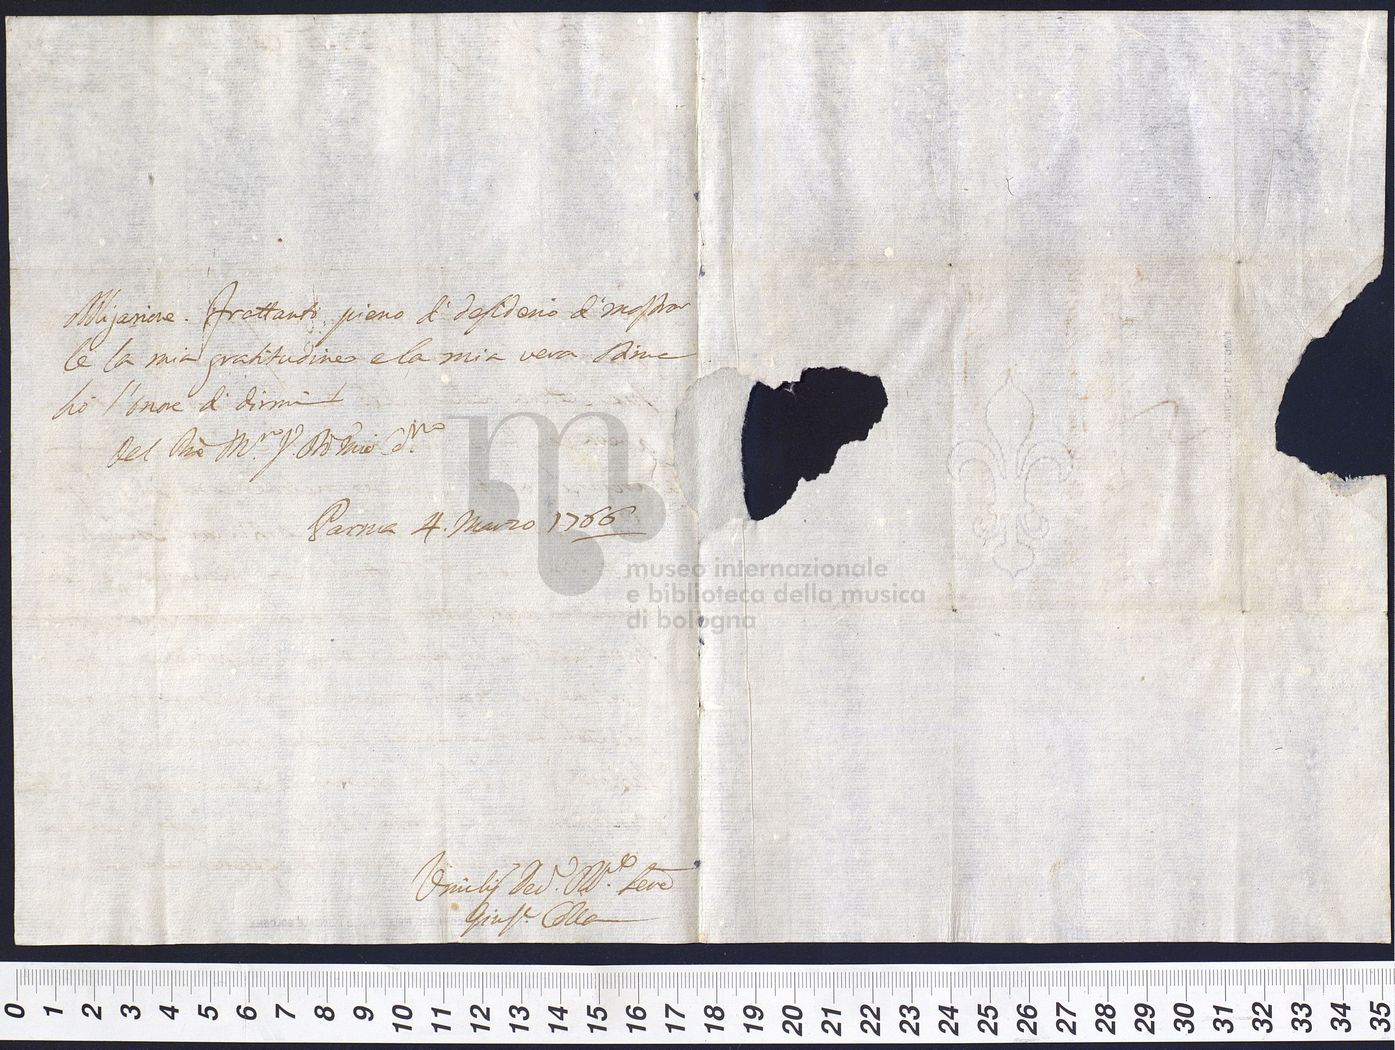 obbligazione. Frattanto pieno di desiderio di mostrar
le la mia gratitudine e la mia vera stima
hò l'onore di dirmi
Del
Parma 4. Marzo 1766
museo internazionale
e biblioteca della musica
di bologna
Umilis. Dev. Obb. Serv
Gius. Colla
0 1 2 3 4 5 6 7 8 9 10 11 12 13 14 15 16 17 18 19 20 21 22 23 24 25 26 27 28 29 30 31 32 33 34 35